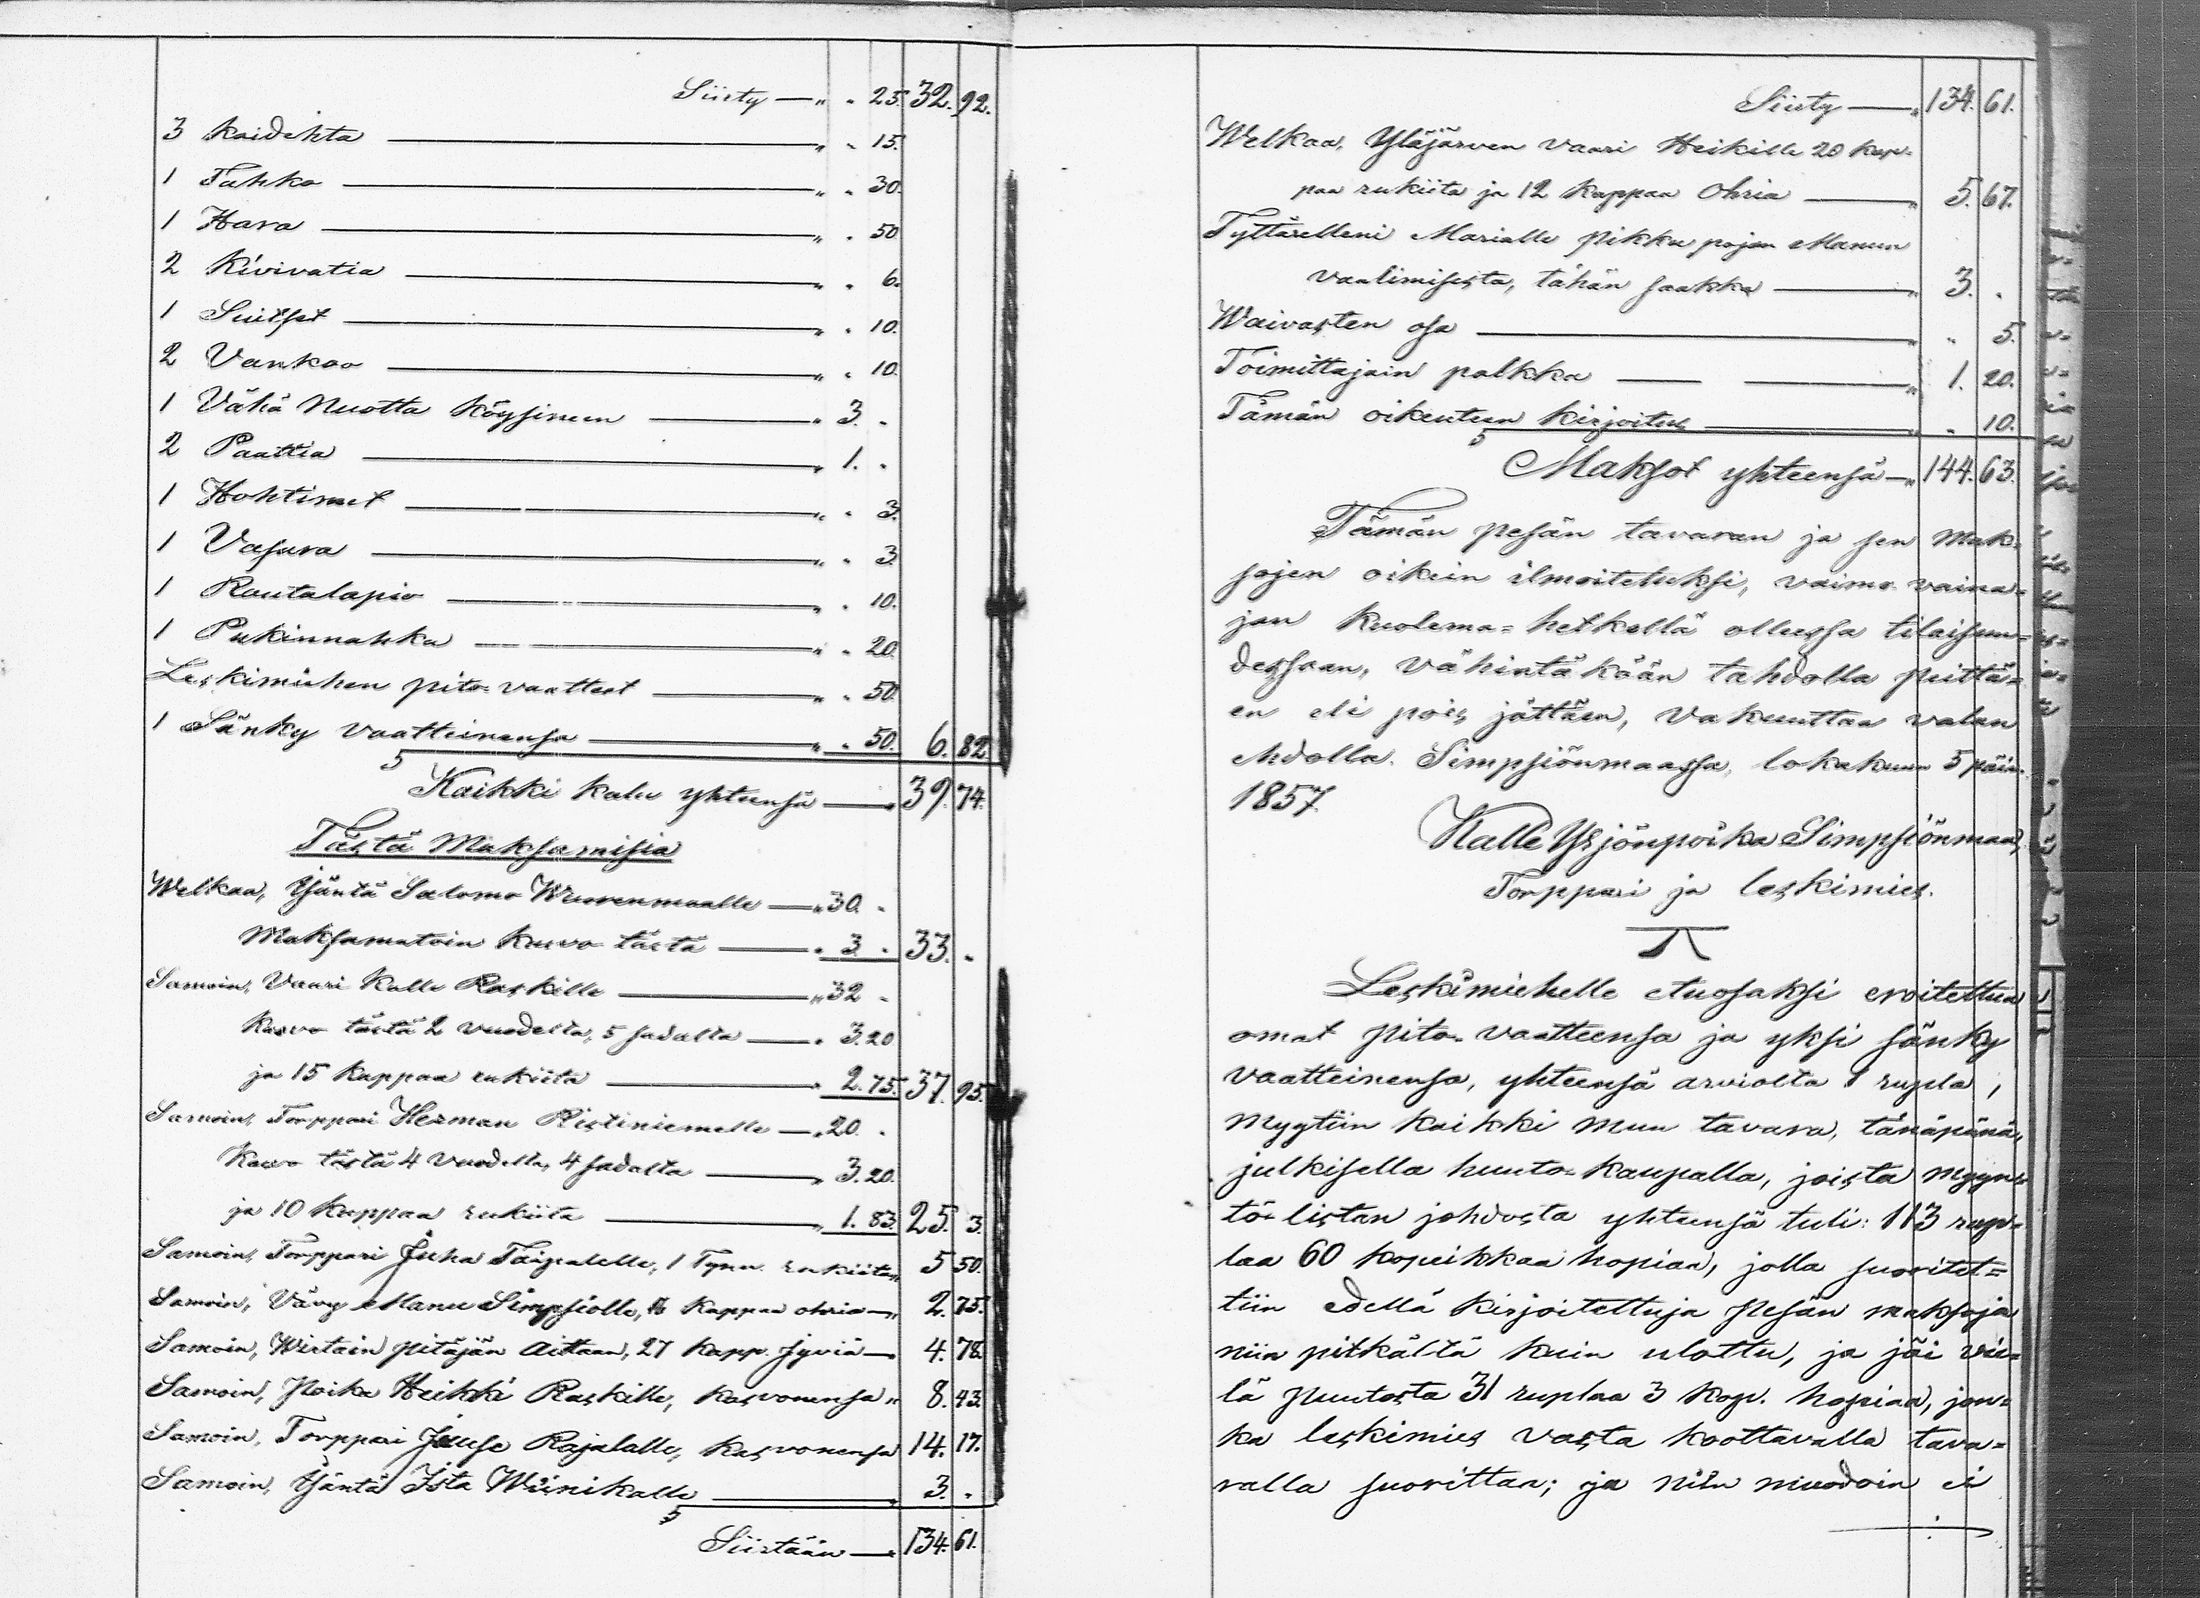 Siirty — " " 25. 32. 92.
3 Kaidehta — " " 15.
1 Tahko — " " 30.
1 Hara — " " 50
2 Kivivatia — " " 6.
1 Suitset — " " 10.
2 Vankoo — " " 10.
1 Vähä Nuotta Köysineen — " 3. "
2 Paattia — " 1. "
1 Hohtimet — " " 3.
1 Vasara — " " 3.
1 Rautalapio — " " 10.
1 Pukinnahka — " " 20.
Leskimiehen pito-vaatteet — " " 50.
1 Sänky vaatteinensa — " " 50. 6. 82
Kaikki kalu yhteensä — " 39. 74.
Tästä Maksamisia
Welkaa, Isäntä Salomo Wuorenmaalle — " 30. "
Maksamatoin kasvo tästä — " 3. " 33. "
Samoin, Vaari Kalle Raskille — " 32 "
Kasvo tästä 2 vuodelta, 5 sadalta — " 3.20
ja 15 kappaa rukiita — " 2.75. 37. 95.
Samoin, Torppari Herman Ristiniemelle — " 20. "
Kasvo tästä 4 vuodelta, 4 sadalta — " 3.20.
ja 10 kappaa rukiita — " 1.83. 25. 3.
Samoin, Torppari Juha Taipalelle, 1 Tynn. rukiita " 5 50.
Samoin, Vävy Manu Simpsiölle, kappaa ohria — " 2. 75.
Samoin, Wirtain pitäjän Aittaan, 27 kapp. Jyviä — 4. 78.
Samoin, Poika Heikki Raskille, kasvonensa " 8. 43.
Samoin, Torppari Juuse Rajalalle, kasvonensa 14. 17.
Samoin, Isäntä Iista Wiinikalle — " 3. "
Siirtään — " 134. 61.
Siirty — " 134. 61.
Welkaa, Yläjärven Vaari Heikille 20 kap-
paa rukiita ja 12 kappaa Ohria — " 5. 67.
Tyttärelleni Marialle pikku pojan Manun
vaalimisesta, tähän saakka — " 3. "
Waivasten osa — " " 5.
Toimittajain palkka — " 1. 20.
Tämän oikeuteen kirjoitus — " " 10.
Maksot yhteensä — " 144. 63.
Tämän pesän tavaran ja sen mak-
sojen oikein ilmoitetuksi, vaimo vaina-
jan kuolema=hetkellä ollessa tilaisuu=
dessaan, vähintäkään tahdolla peittä=
en eli pois jättäen, vakuuttaa valan
ehdolla. Simpsiönmaassa, lokakuun 5 päiv.
1857.
Kalle Yrjönpoika Simpsiönmaa,
Torppari ja leskimies.
Leskimiehelle etuosaksi eroitettua
omat pito-vaatteensa ja yksi sänky
vaatteinensa, yhteensä arviolta 1 rupla,
myytiin kaikki muu tavara, tänäpänä,
julkisella huuto=kaupalla, joista myyn-
tö listan johdosta yhteensä tuli: 113 rup-
laa 60 kopeikkaa hopiaa, jolla suoritet=
tiin edellä kirjoitettuja pesän maksoja
niin pitkältä kuin ulottu, ja jäi vie-
lä puutosta 31 ruplaa 3 kop. hopiaa, jon-
ka leskimies vasta koottavalla tava=
ralla suorittaa; ja niin muodoin ei